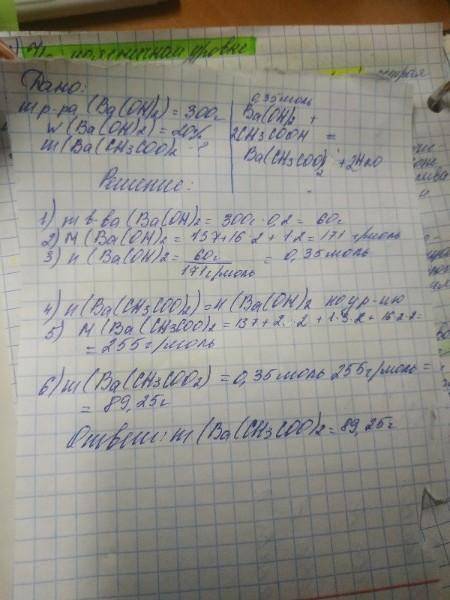 молекулярном уровне
Дано:
m р-ра (Ba(OH)2) = 300г
W (Ba(OH)2) = 20%
m (Ba(CH3COO)2 - ?
0,35моль
Ba(OH)2 +
2CH3COOH =
Ba(CH3COO)2 + 2H2O
Решение:
1) m в-ва (Ba(OH)2 = 300г · 0,2 = 60г
2) M (Ba(OH)2 = 137+16·2 + 1·2 = 171 г/моль
3) n (Ba(OH)2 = 60г / 171г/моль = 0,35моль
4) n(Ba(CH3COO)2) = n(Ba(OH)2 по ур-ию
5) M (Ba(CH3COO)2 = 137+ 2· 2 + 1·3·2 + 16·2·2
= 255г/моль
6) m (Ba(CH3COO2) = 0,35моль 255г/моль =
= 89,25г
Ответ: m (Ba(CH3COO)2 = 89,25г